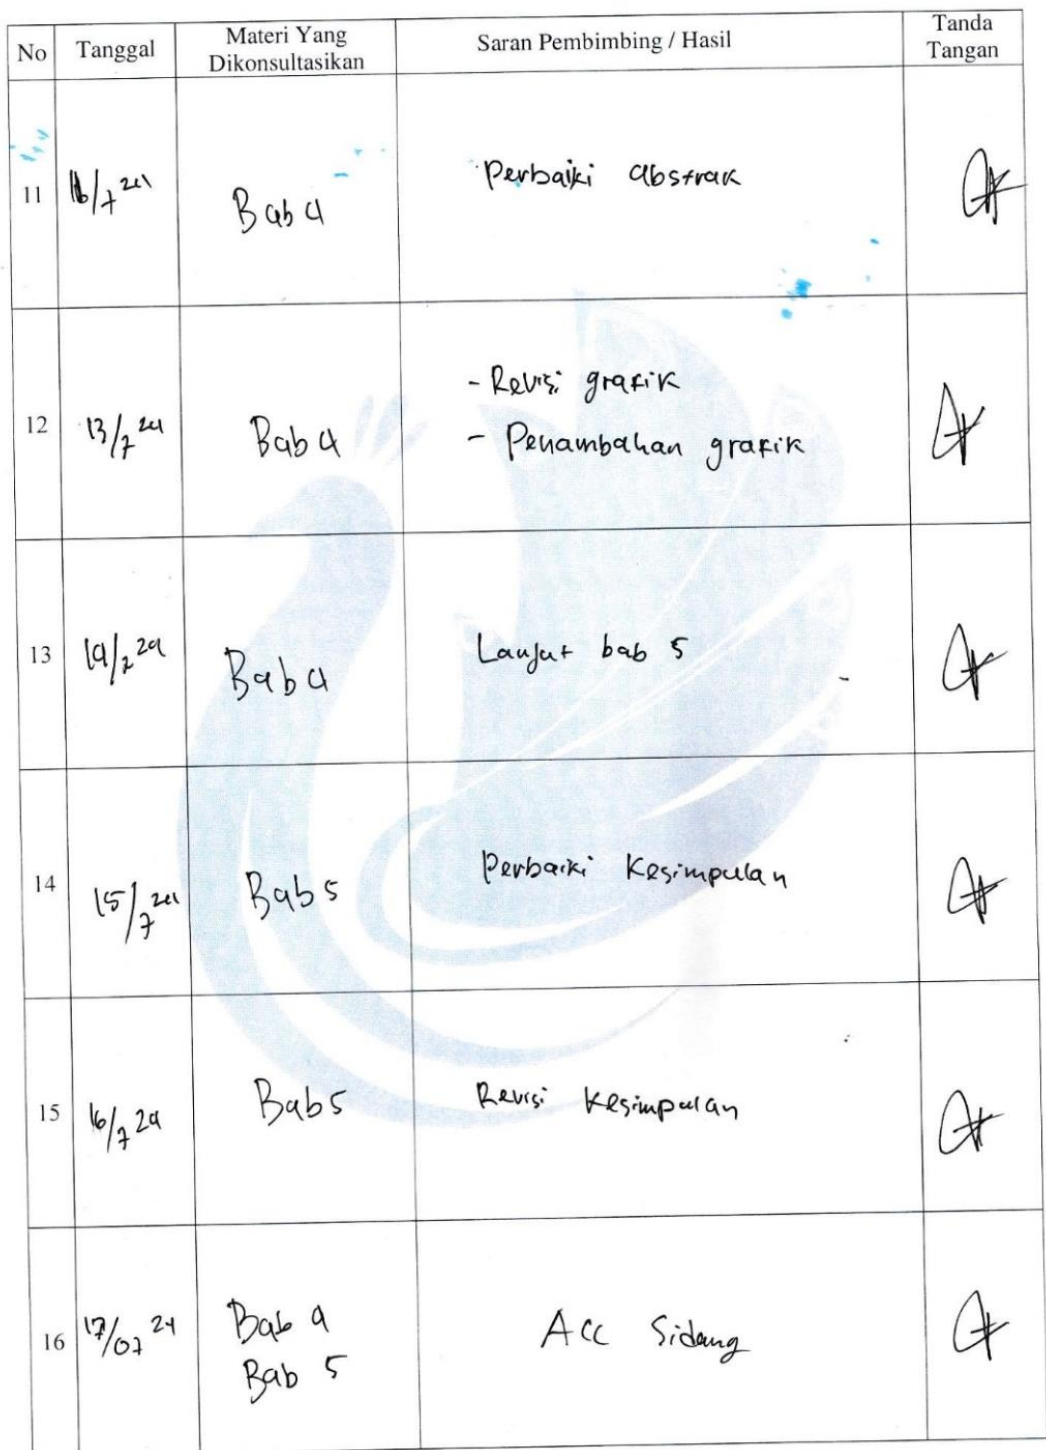 No Tanggal Materi Yang Dikonsultasikan Saran Pembimbing / Hasil Tanda Tangan
11 /7 24 Bab 4 Perbaiki abstrak
12 13/7 24 Bab 4 - Revisi grafik
- Penambahan grafik
13 14/7 24 Bab 4 Lanjut bab 5
14 15/7 24 Bab 5 Perbaiki Kesimpulan
15 16/7 24 Bab 5 Revisi Kesimpulan
16 17/07 24 Bab 4 Acc Sidang
Bab 5